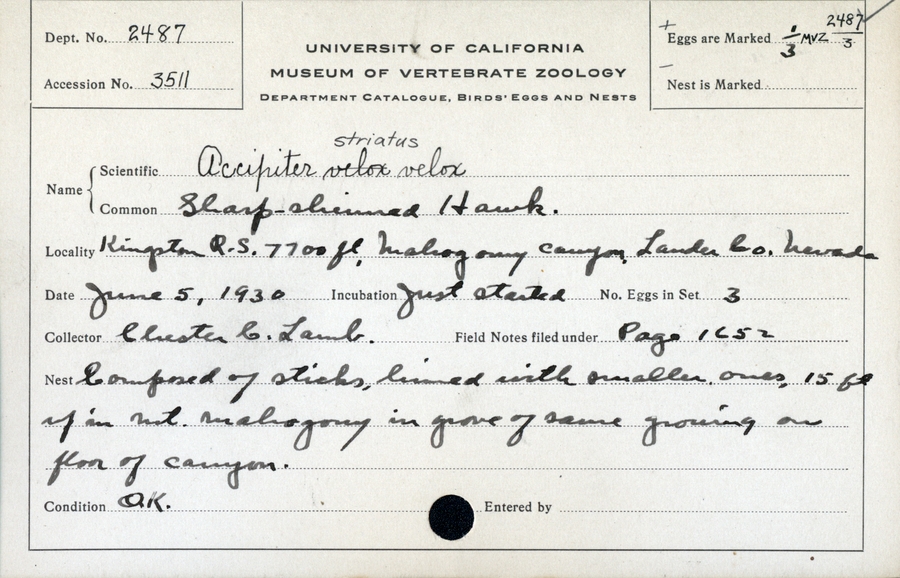 Dept. No. 2487
Accession No. 3511
UNIVERSITY OF CALIFORNIA
MUSEUM OF VERTEBRATE ZOOLOGY
DEPARTMENT CATALOGUE, BIRDS' EGGS AND NESTS
+ Eggs are Marked 1/3 MVZ 2487/3
– Nest is Marked
striatus
Name { Scientific Accipiter velox velox
Common Sharp-shinned Hawk.
Locality Kingston R.S. 7700 ft, Mahogony canyon, Lander Co. Nevada
Date June 5, 1930 Incubation Just started No. Eggs in Set 3
Collector Chester C. Lamb. Field Notes filed under Page 1652
Nest Composed of sticks, linned with smaller ones, 15 ft
up in mt. mahogony in grove of same growing on
floor of canyon.
Condition O.K. Entered by